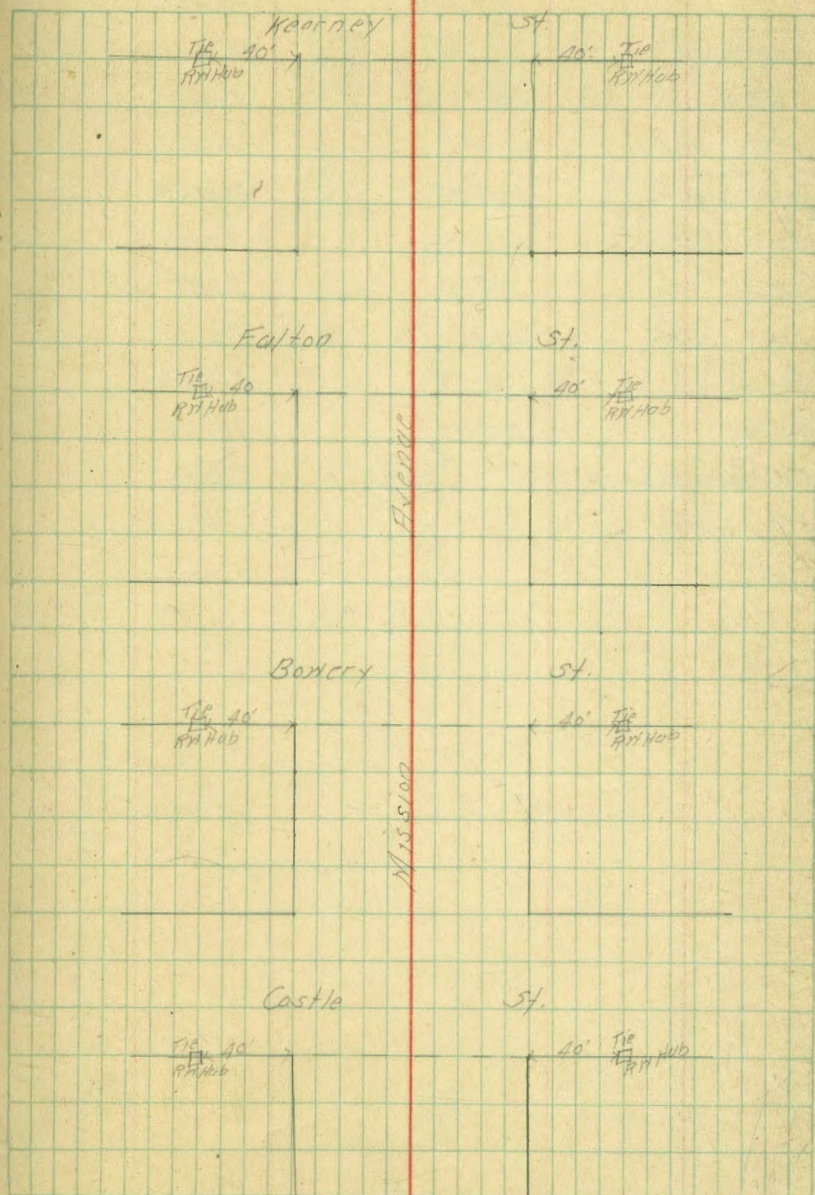 Kearney St.
Tie 40' 40' Tie
RW Hub RW Hub
Fulton St.
Tie 40 40' Tie
RW Hub RW Hub
Avenue
Bowery St.
Tie 40' 40' Tie
RW Hub RW Hub
Mission
Castle St.
Tie 40' 40' Tie
RW Hub RW Hub